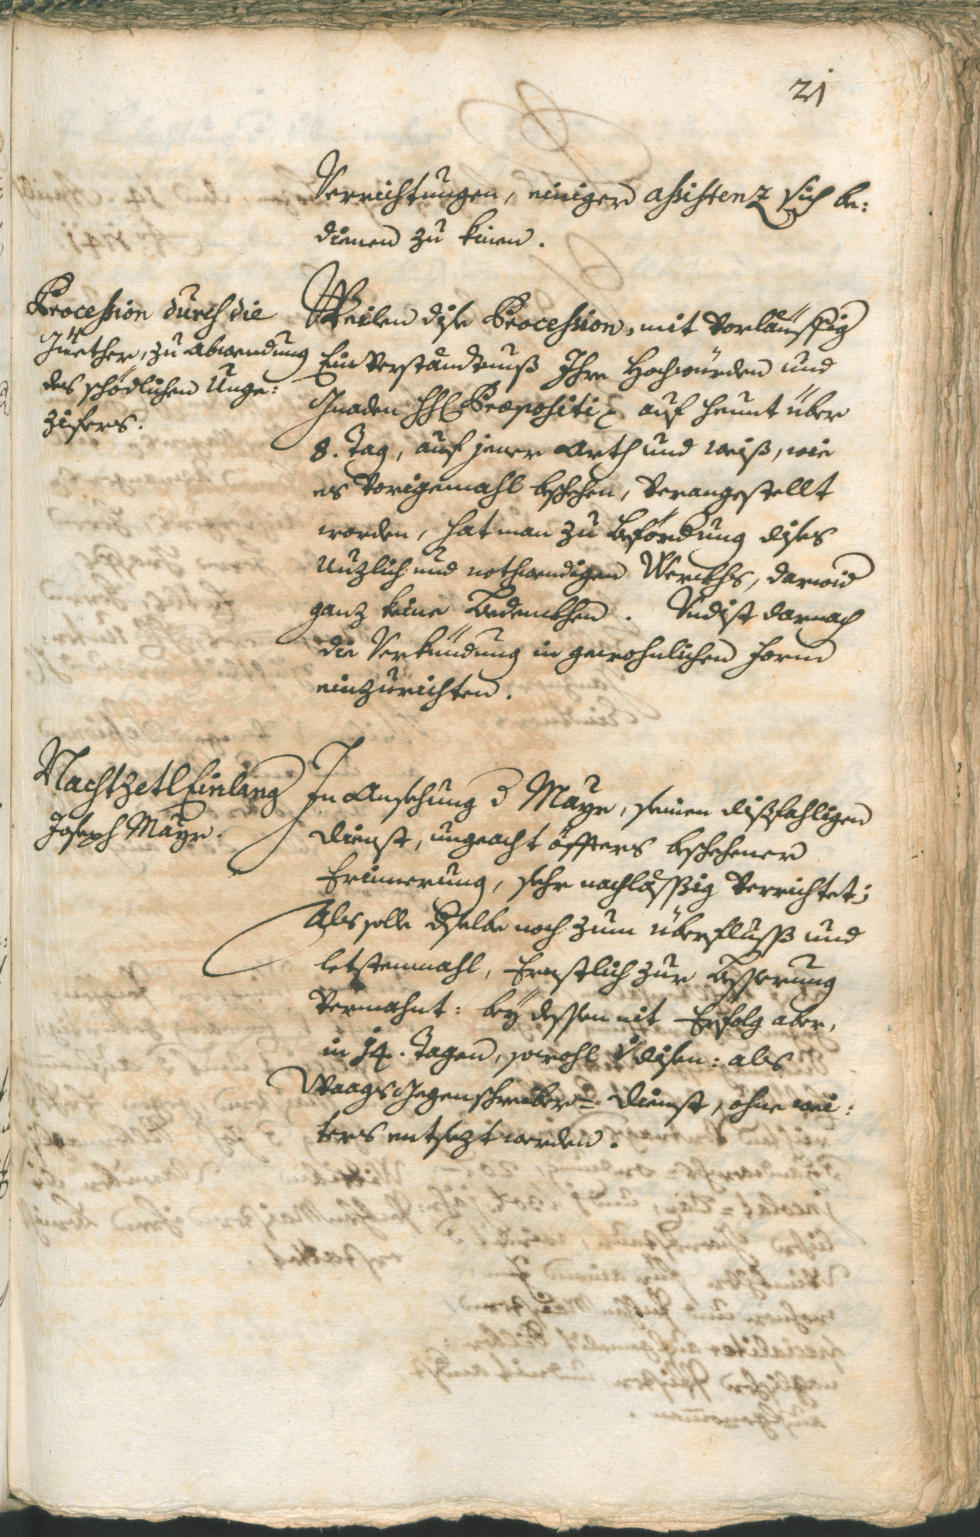 21
Verrichtungen, einiger assistenz sich be:
dienen zu kinen.
Procession durch die
Güether, zu abwendung
des schödlichen Unge:
zifers.
Weilen dise Procession, mit vorläuffig
Einverständtnuß Ihro Hochwürden und
Gnaden HH Praepositi auf heunt über
8. Tag, auf jener arth und weiß, wie
es vorigemahl beschehen, verangestellt
worden, hat man zu beförderung dises
Nuzlich und nothwendigen Werckhs, darwid
ganz keine Bedenckhen. Und ist darnach
die Verkündung in gewohnlichen form
einzurichten.
Nachtzetl Einlang
Joseph Mayr.
In Ansehung d Mayr, seinen dißfahligen
dienst, ungeacht öffters beschehener
Erinnerung, sehr nachläßig verrichtet;
Als solle dselbe noch zum überfluß und
letstenmahl, Ernstlich zur besserung
vermahnt: bey dessen nit Erfolg aber,
in 14. Tagen, sowohl disen: als
Waags Gegenschreiber= dienst, ohne wei:
ters entsezt werden.